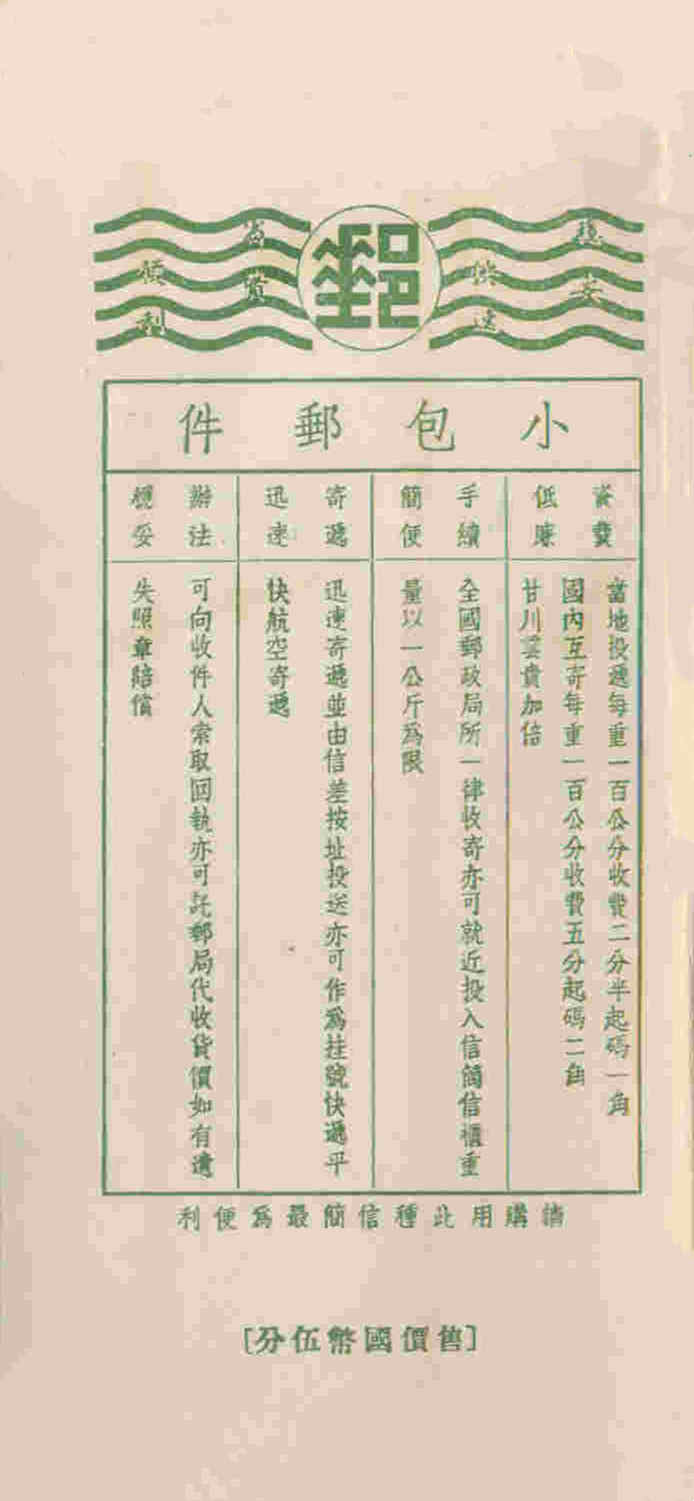 穩安
快速
郵
省費
便利
小包郵件
資費
低廉
當地投遞每重一百公分收費二分半起碼一角
國內互寄每重一百公分收費五分起碼二角
甘川雲貴加倍
手續
簡便
全國郵政局所一律收寄亦可就近投入信筒信櫃重
量以一公斤為限
寄遞
迅速
迅速寄遞並由信差按址投送亦可作為挂號快遞平
快航空寄遞
辦法
穩妥
可向收件人索取回執亦可託郵局代收貨價如有遺
失照章賠償
請購用此種信簡最為便利
[售價國幣伍分]